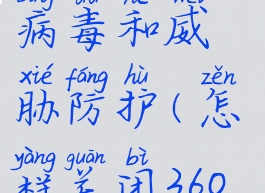 病毒和威
xié fáng hù zěn
胁防护(怎
yàng guān bì
样关闭360